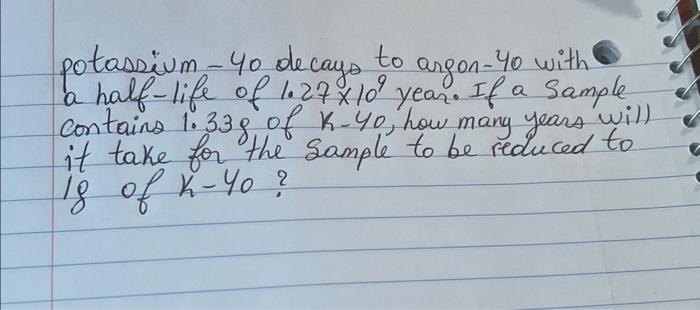 potassium-40 decays to argon-40 with
a half-life of 1.27x10⁹ year. If a Sample
contains 1.33g of K-40, how many years will
it take for the Sample to be reduced to
1g of K-40?